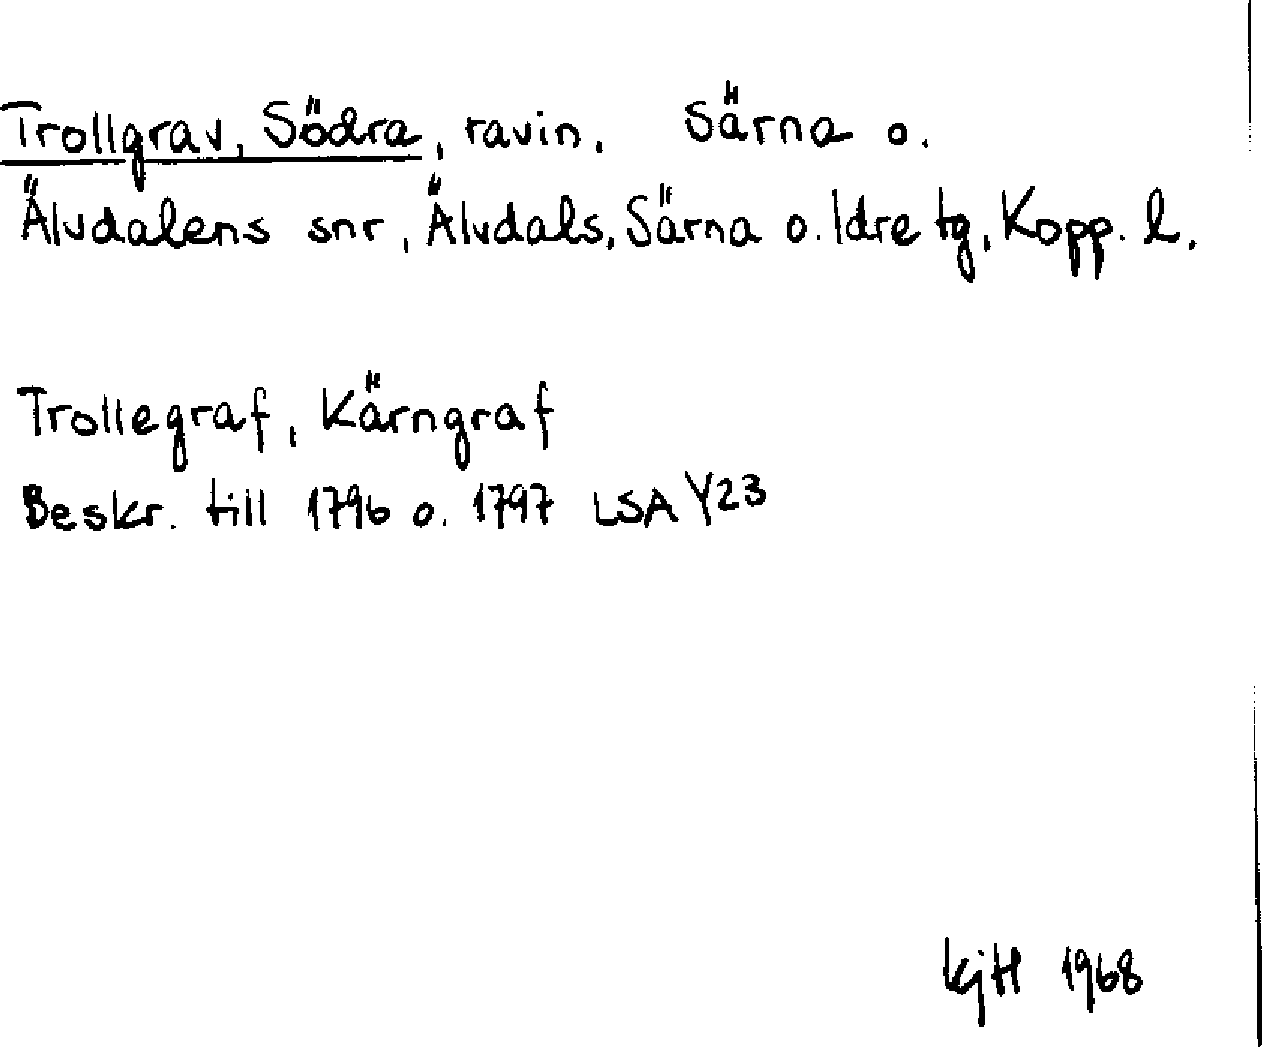 Trollgrav, Södra, ravin. Särna o.
Älvdalens snr, Älvdals, Särna o. Idre tg, Kopp. l.
Trollegraf, Kärngraf
Beskr. till 1796 o. 1797 LSA Y23
KjH 1968